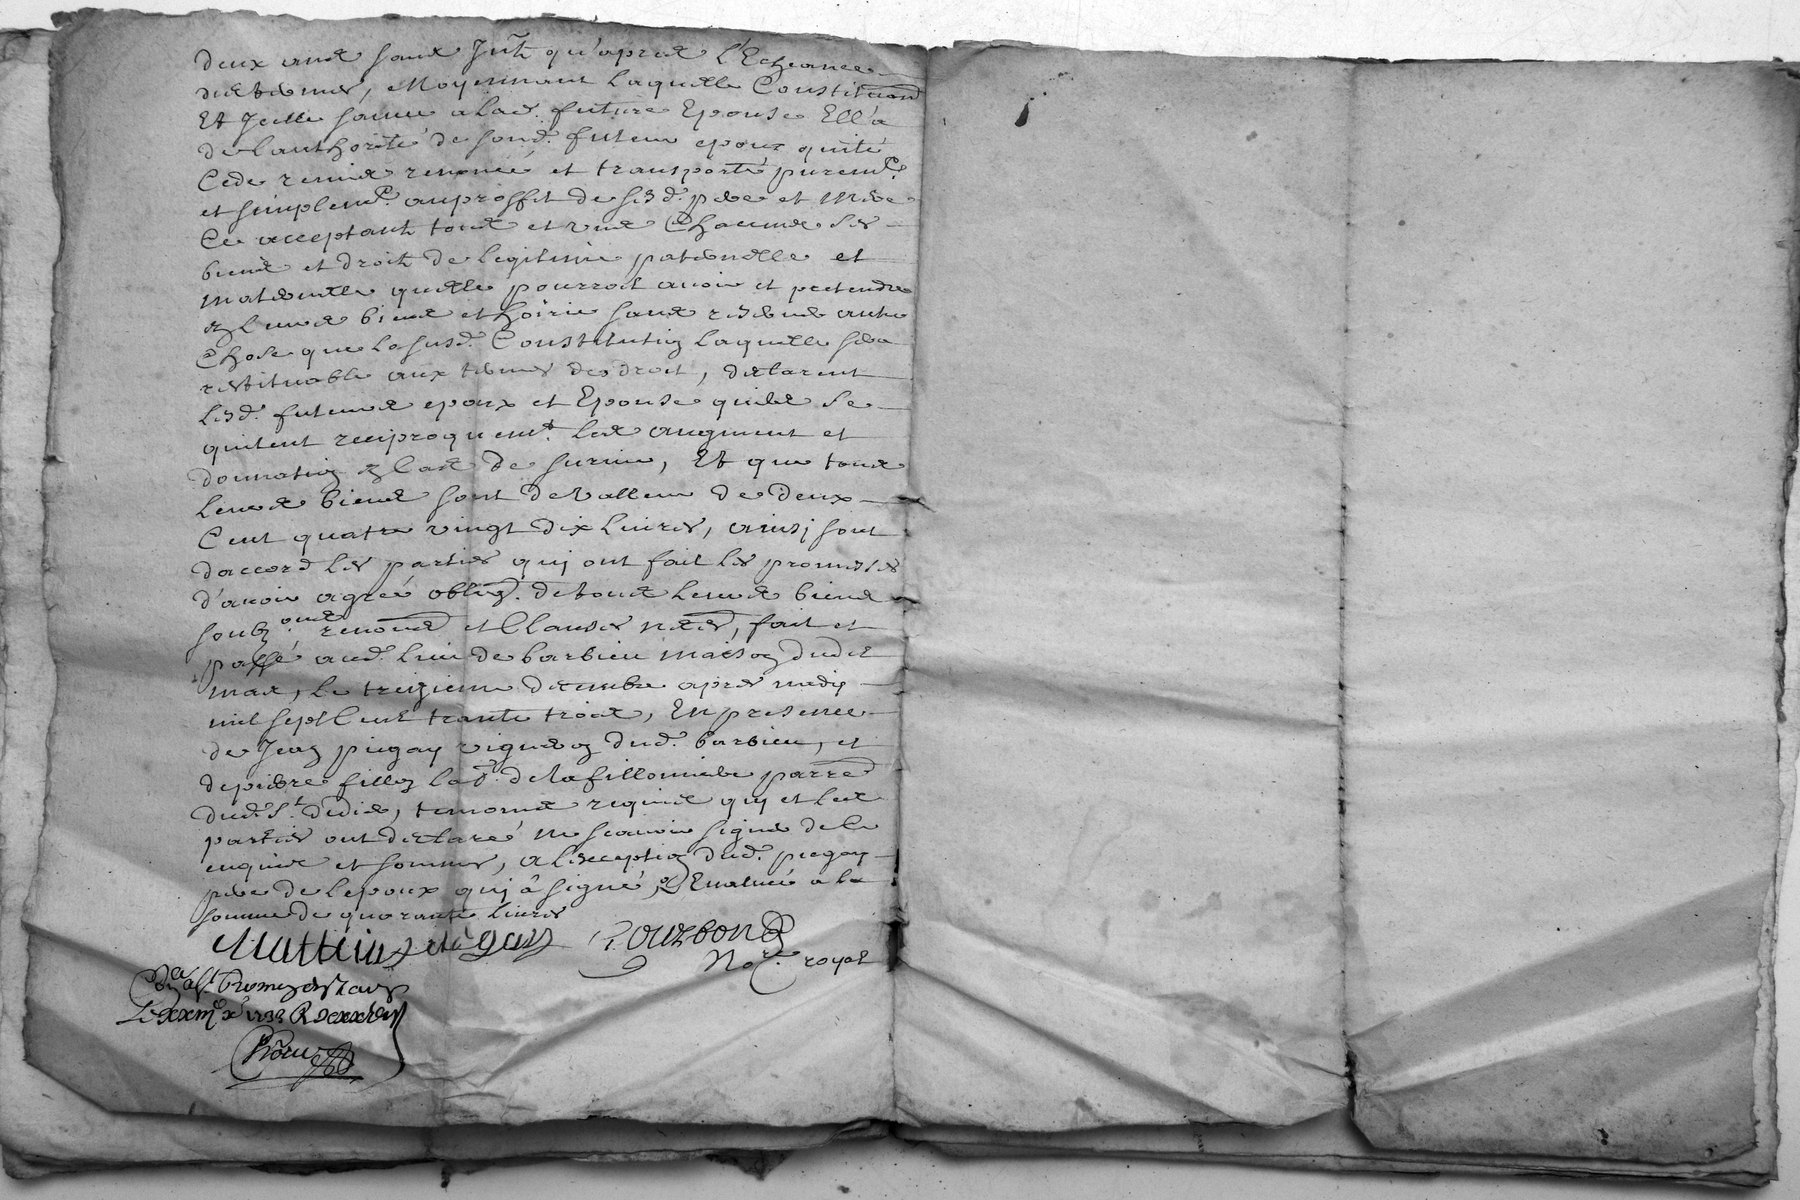 deux ans sans Jnt. qu'apres l'Echeance
des termes, Moyennant laquelle Constitution
Et Jcelle somme a lad. future Epouse Ell'a
de l'authorité de sond. futeur epoux quité
Cede remis renoncé et transporté puremt.
et simplemt. au proffit de sesd. pere et Mere
Ce acceptant tous et uns Chacuns ses
biens et droits de legitime paternelle et
maternelle quelle pourroit avoir et pretendre
en leurs biens et hoirie sans reserve autre
Chose que la susd. Constitution laquelle sera
restituable aux termes de droit, declarent
lesd. futeurs epoux et Epouse quils se
quitent reciproquemt. les augment et
donnation en cas de survie, Et que tous
leurs biens sont de valleur de deux
Cent quatre vingt dix livres, ainsj sont
d'accord les parties quj ont fait les promesses
d'avoir agréé oblig. de tous leurs biens
soubz ons renons et Clauses nres, fait et
passé aud. lieu de barbieu maison dudit
mas, le treizieme decembre apres midy
mil sept Cent trante trois, En presence
de Jean piegay vigneron dud. barbieu, et
de pierre fillon lad. de la fillonniere parre
dud. St. didier, temoins requis quj et les
parties ont declaré ne scavoir signer de ce
enquis et sommes, a l'exception dud. piegay
pere de lepoux quj â signé, Evalué a la
somme de quarante livres
Mattieu piegay Bourbon
Nore. royal